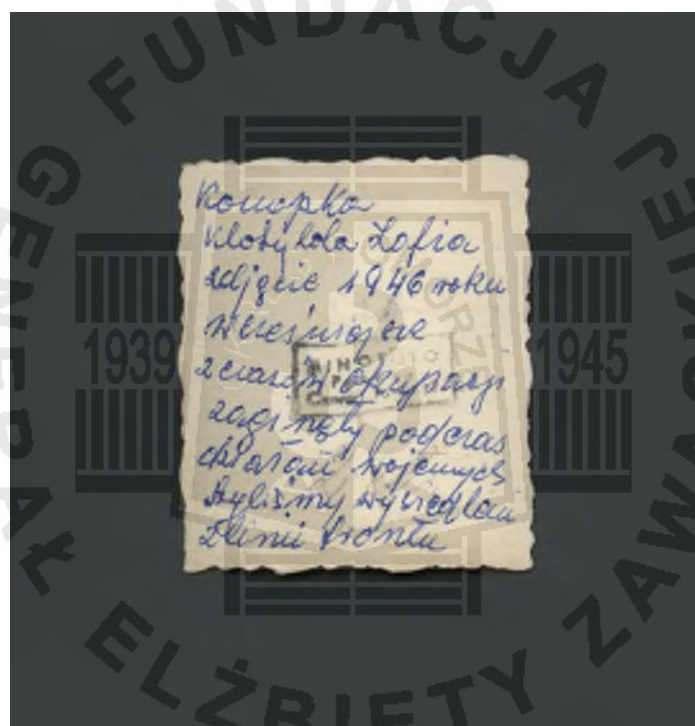 FUNDACJA
GENERAŁ ELŻBIETY ZAWACKIEJ
1939
1945
POMORZE
Konopka
Klotylda Zofia
zdjęcie 1946 roku
wcześniejsze
z czasów okupacji
zaginęły podczas
działań wojennych
byliśmy wysiedlani
z linii frontu